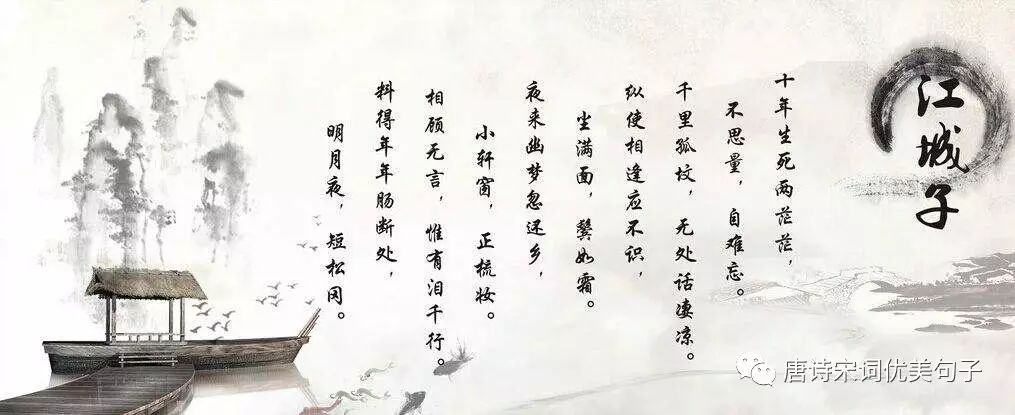 江城子
十年生死两茫茫，
不思量，自难忘。
千里孤坟，无处话凄凉。
纵使相逢应不识，
尘满面，鬓如霜。
夜来幽梦忽还乡，
小轩窗，正梳妆。
相顾无言，惟有泪千行。
料得年年肠断处，
明月夜，短松冈。
唐诗宋词优美句子